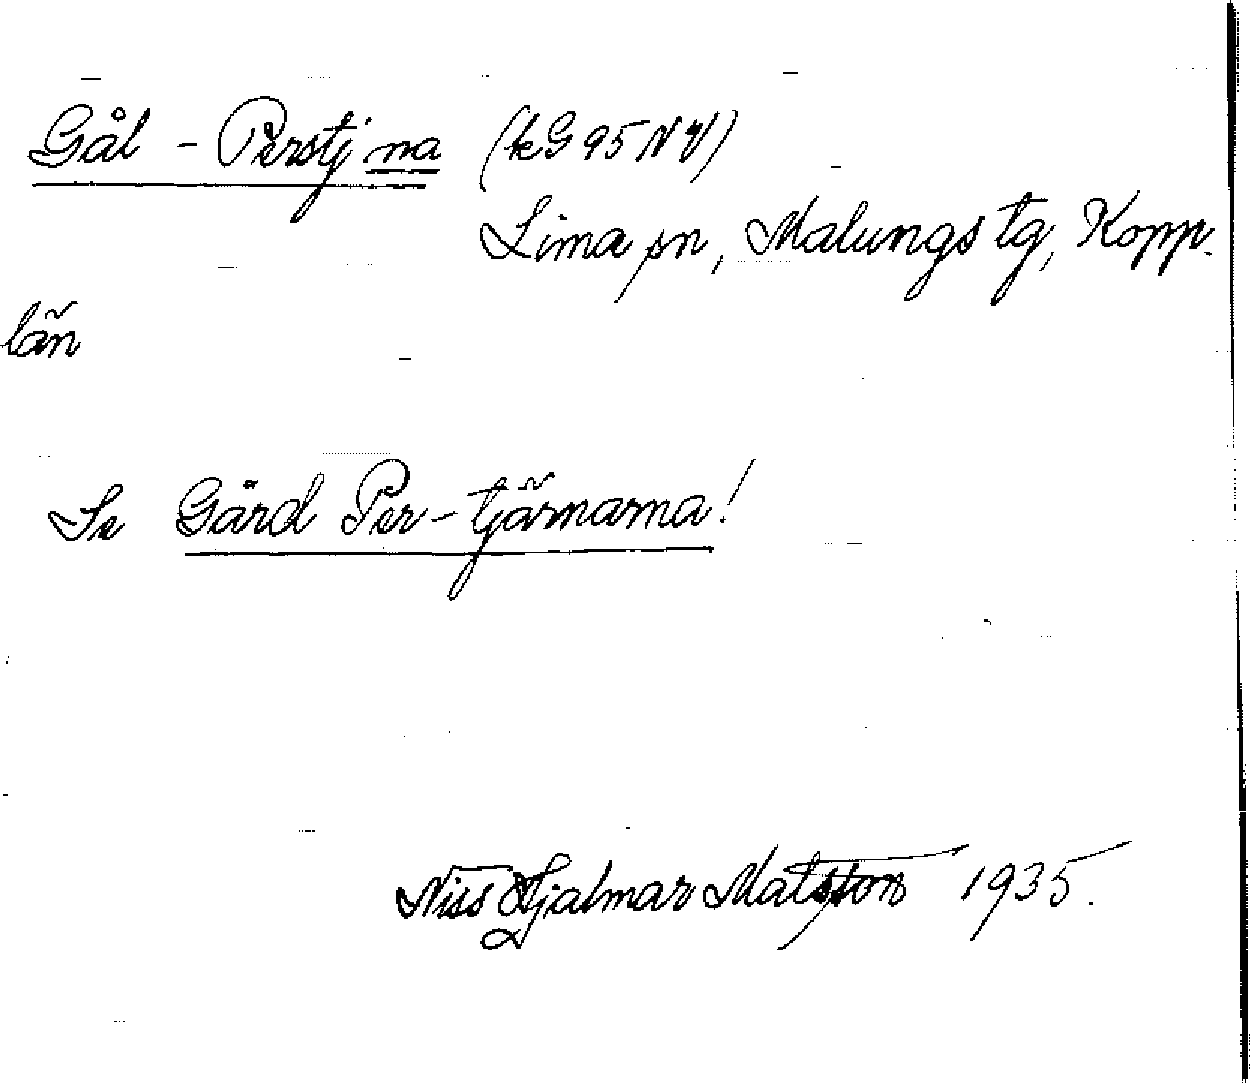 Gål - Perstjna (kG95NV)
Lima sn, Malungs tg, Kopp.
län
Se Gård Per-tjärnarna!
Niss Hjalmar Matsson 1935.